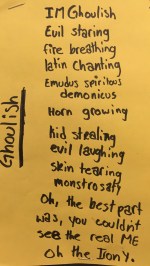 Ghoulish
IM Ghoulish
Evil staring
fire breathing
latin chanting
Emudus spiritous
demonicus
Horn growing
kid stealing
evil laughing
skin tearing
monstrosaty
Oh, the best part
was, you couldn't
see the real ME
Oh the Irony.